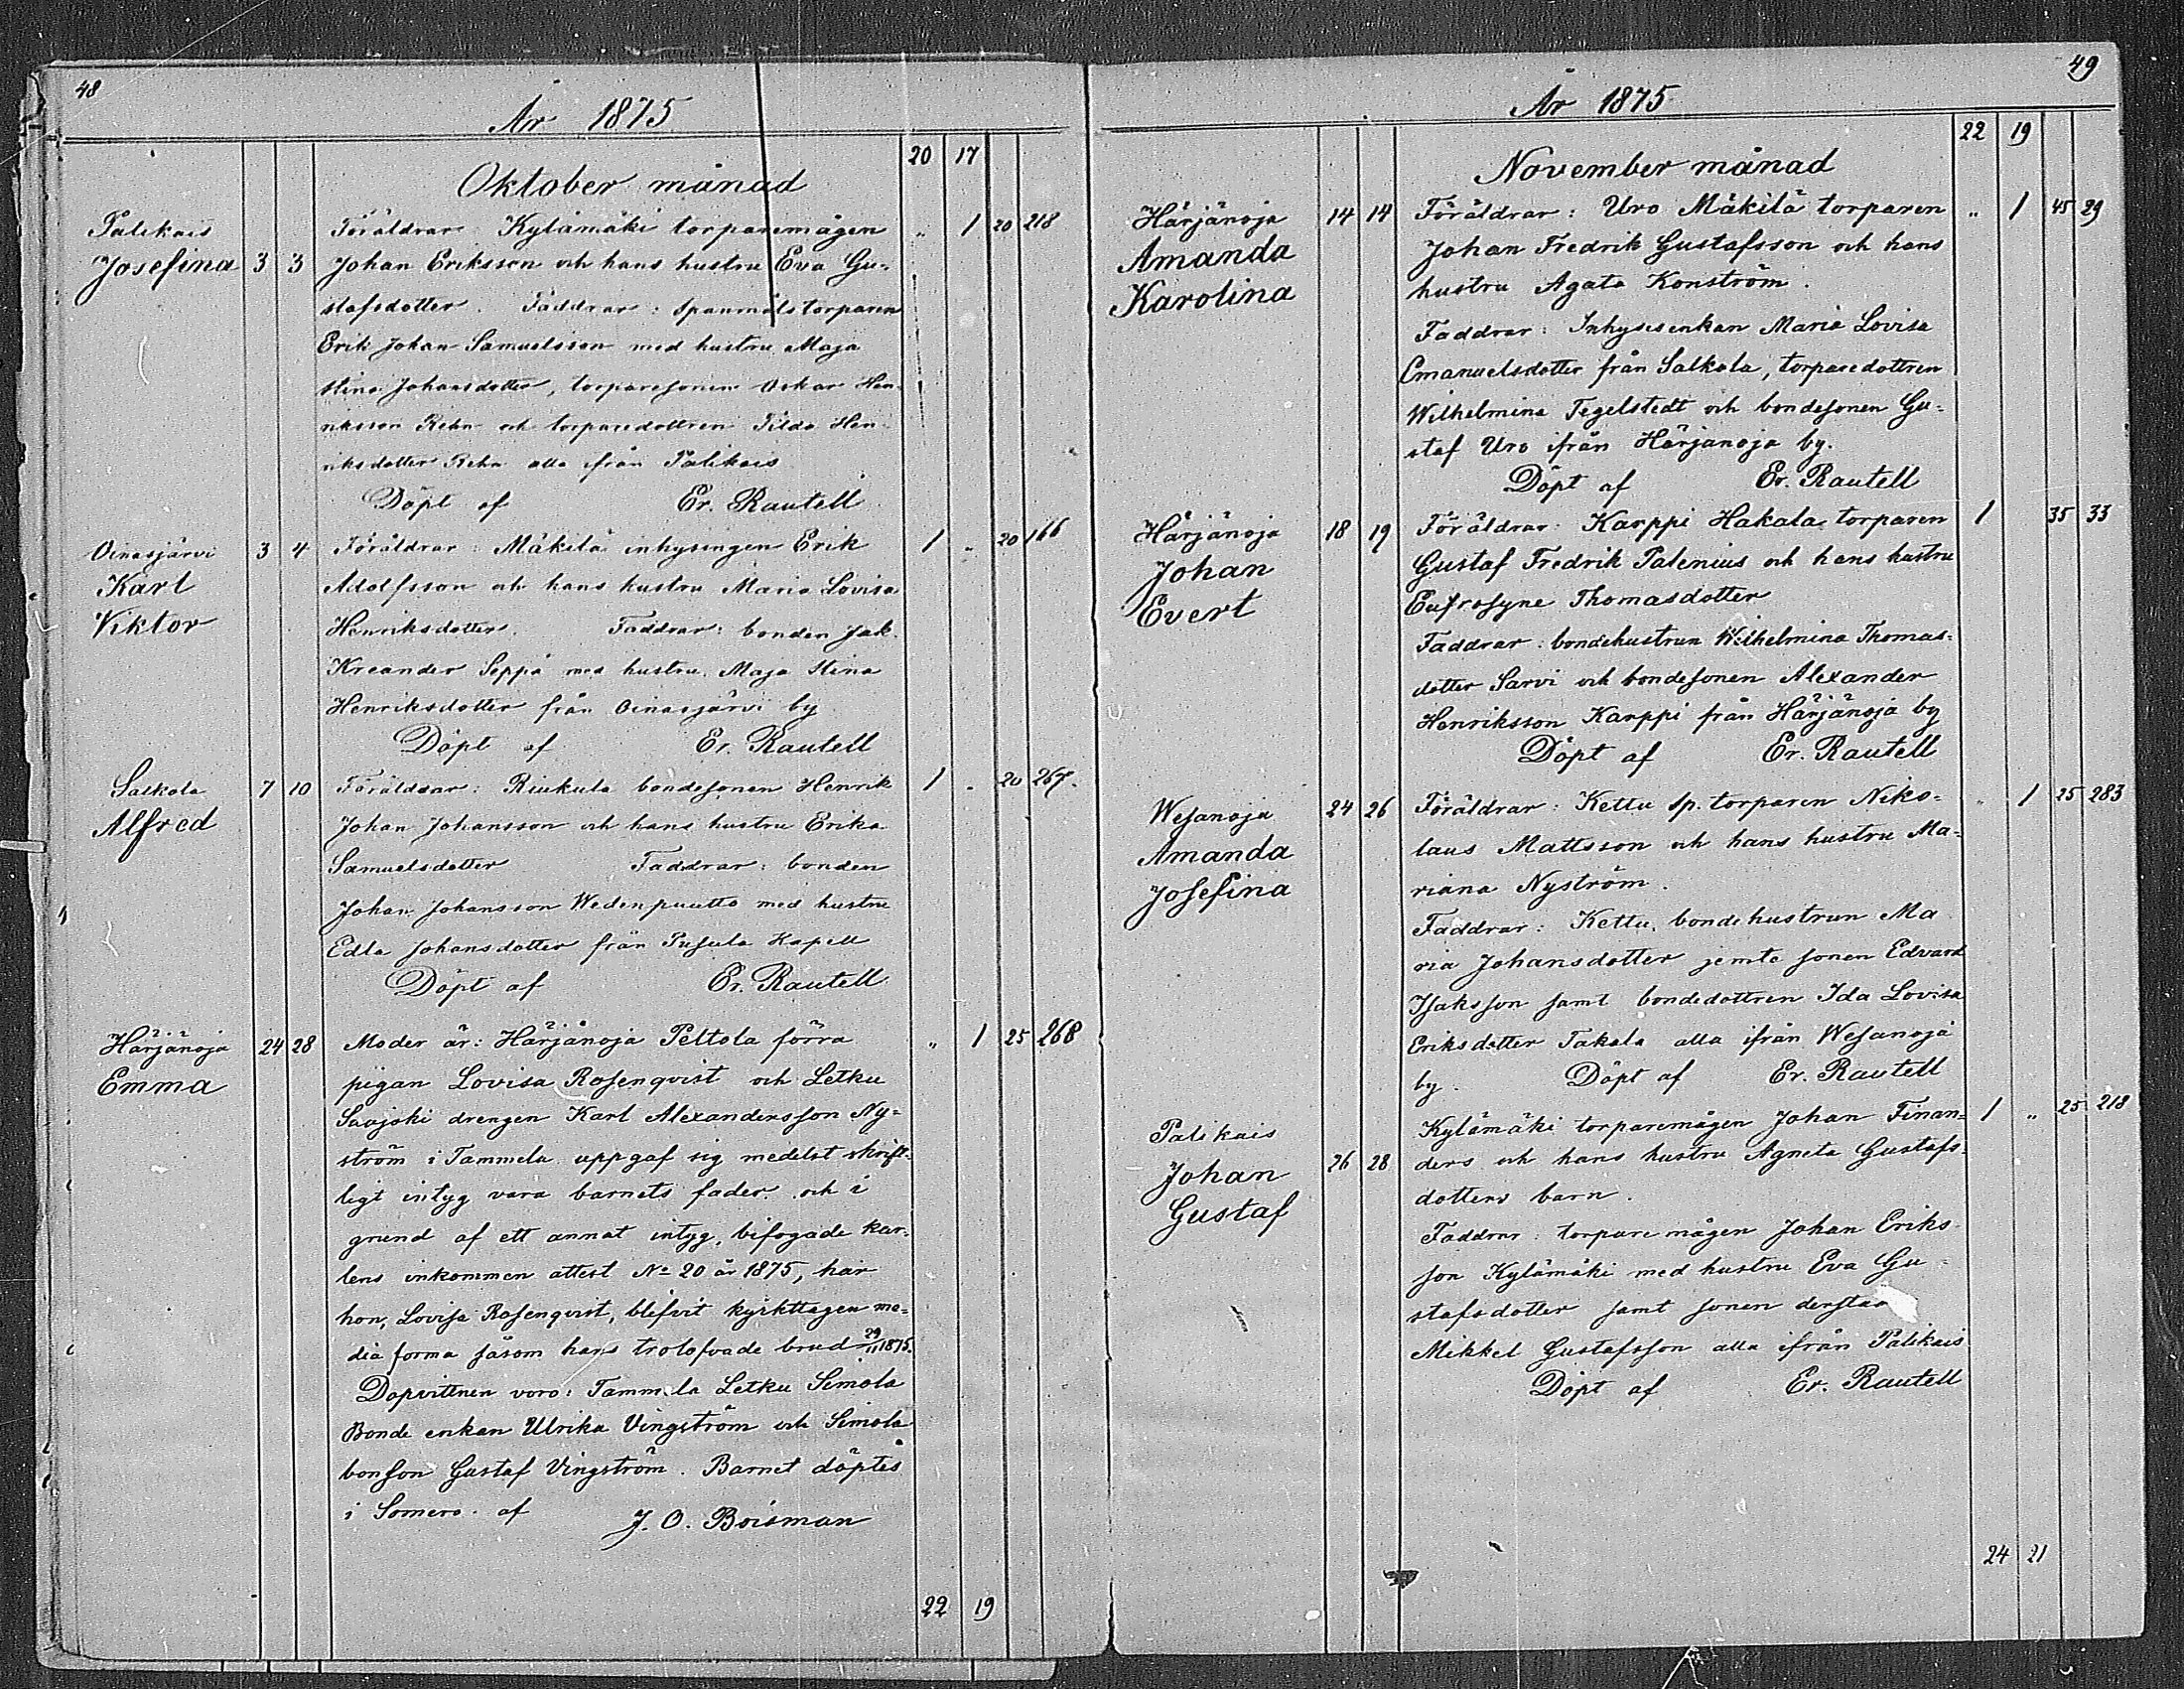 48
År 1875
20 17
Oktober månad
Palikais
Josefina 3 3
Föräldrar Kylämäki torparemågen „ 1 20 218
Johan Eriksson och hans hustru Eva Gu-
stafsdotter. Faddrar: spanmålstorparen
Erik Johan Samuelsson med hustru Maja
Stina Johansdotter, torparesonen Oskar Hen-
riksson Rehn och torparedottren Tilda Hen-
riksdotter Rehn alla ifrån Palikais
Döpt af Er. Rautell
Oinasjärvi 3 4
Karl
Viktor
Föräldrar: Mäkilä inhysingen Erik 1 „ 20 166
Adolfsson och hans hustru Maria Lovisa
Henriksdotter. Faddrar: bonden Jak.
Kreander Seppä med hustru Maja Stina
Henriksdotter från Oinasjärvi by
Döpt af Er. Rautell
Salkola 7 10
Alfred
Föräldrar: Riukula bondesonen Henrik 1 „ 20 267.
Johan Johansson och hans hustru Erika
Samuelsdotter Faddrar: bonden
Johan Johansson Wedenpuutto med hustru
Edla Johansdotter från Pusula Kapell
Döpt af Er. Rautell
Härjänoja 24 28
Emma
Moder är: Härjänoja Peltola förra „ 1 25 268
pigan Lovisa Rosenqvist och Letku
drengen Karl Alexandersson Ny-
ström i Tammela uppgaf sig medelst skrift-
ligt intyg vara barnets fader och i
grund af ett annat intyg, bifogade kar-
lens inkommen attest No 20 år 1875, har
hon, Lovisa Rosenqvist, blifvit kyrkttagen me-
dia forma såsom hans trolofvade brud 29/11 1875.
Dopvittnen voro: Tammela Letku Simola
Bonde enkan Ulrika Vingström och Simola
bonson Gustaf Vingström. Barnet döptes
i Somero af J. O. Boisman
22 19
49
År 1875
22 19
November månad
Härjänoja 14 14
Amanda
Karolina
Föräldrar: Uro Mäkilä torparen „ 1 45 29
Johan Fredrik Gustafsson och hans
hustru Agata Konström.
Faddrar: Inhysesenkan Maria Lovisa
Emanuelsdotter från Salkola, torparedottren
Wilhelmina Tegelstedt och bondesonen Gu-
staf Uro ifrån Härjanoja by.
Döpt af Er. Rautell
Härjänoja 18 19
Johan
Evert
Föräldrar: Karppi Hakala torparen 1 35 33
Gustaf Fredrik Palenius och hans hustru
Eufrosyne Thomasdotter
Faddrar: bondehustrun Wilhelmina Thomas-
dotter Sarvi och bondesonen Alexander
Henriksson Karppi från Härjänoja by
Döpt af Er. Rautell
Wesanoja 24 26
Amanda
Josefina
Föräldrar: Kettu sp. torparen Niko- „ 1 25 283
laus Mattsson och hans hustru Ma-
riana Nyström.
Faddrar: Kettu bondehustrun Ma
ria Johansdotter jemte sonen Edvard
Isaksson samt bondedottren Ida Lovisa
Eriksdotter Takala alla ifrån Wesanoja
by. Döpt af Er. Rautell
Palikais
Johan 26 28
Gustaf
Kylämäki torparemågen Johan Finan- 1 „ 25 218
ders och hans hustru Agneta Gustafs-
dotters barn.
Faddrar: torparemågen Johan Eriks-
son Kylämäki med hustru Eva Gu-
stafsdotter samt sonen derstäd
Mikkel Gustafsson alla ifrån Palikais
Döpt af Er. Rautell
24 21